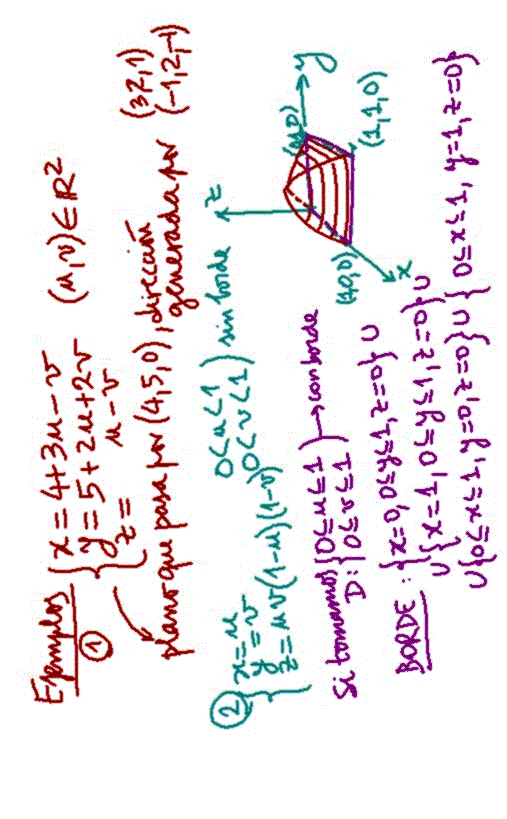 Ejemplos
① { x = 4+3u-v
y = 5+2u+2v
z = u-v
(u,v) ∈ ℝ²
plano que pasa por (4,5,0), dirección generada por (3,2,1) (-1,2,-1)
② { x = u
y = v
z = uv(1-u)(1-v)
0<u<1
0<v<1 ) sin borde
Si tomamos D: { 0≤u≤1
0≤v≤1 ) → con borde
z
y
x
(1,0,0)
(0,1,0)
(1,1,0)
BORDE : {x=0, 0≤y≤1, z=0} ∪
∪ {x=1, 0≤y≤1, z=0} ∪
∪ {0≤x≤1, y=0, z=0} ∪ {0≤x≤1, y=1, z=0}